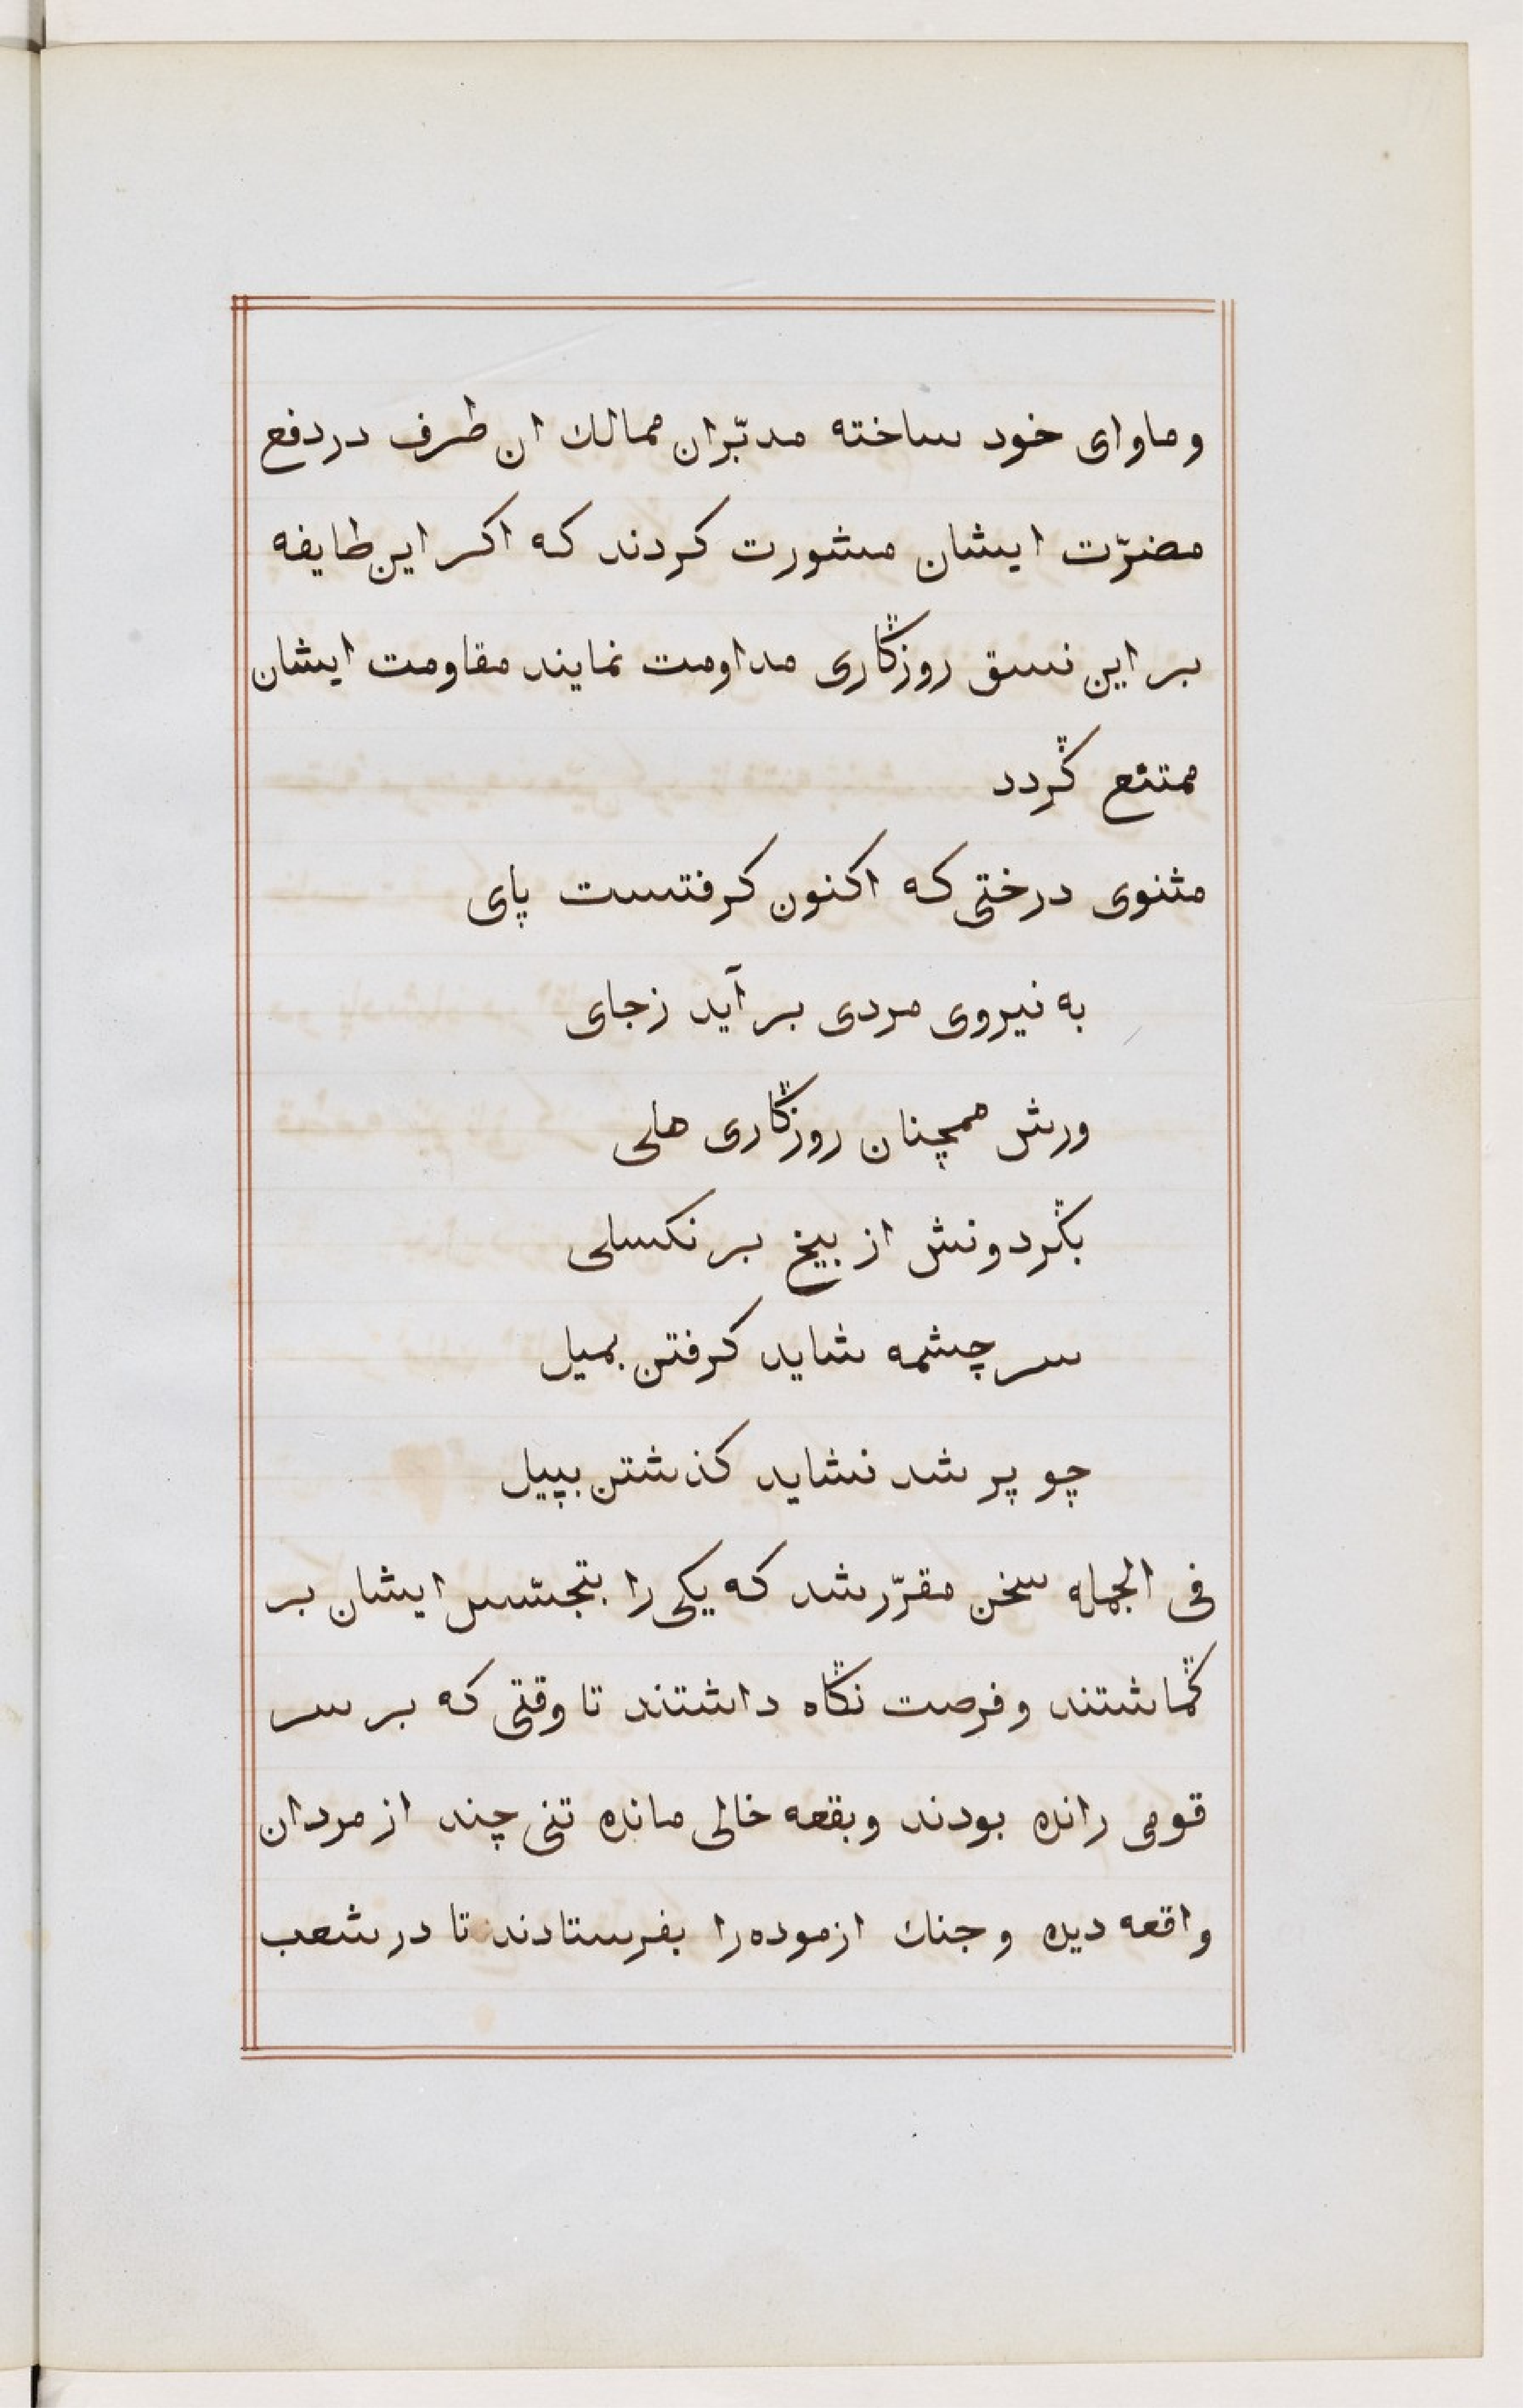 وماوای خود ساخته مدبّران ممالك ان طرف دردفع
مضرّت ایشان مشورت كردند كه اكر این طایفه
بر این نسق روزگاری مداومت نمایند مقاومت ایشان
ممتنع گردد
مثنوی درختی كه اكنون كرفتست پای
به نیروی مردی بر آید زجای
ورش همچنان روزگاری هلی
بگردونش از بیخ بر نكسلی
سر چشمه شاید كرفتن بمیل
چو پر شد نشاید كذشتن بپیل
فی الجمله سخن مقرّر شد كه یكی را بتجسّس ایشان بر
گماشتند وفرصت نگاه داشتند تا وقتی كه بر سر
قومی رانده بودند وبقعه خالی مانده تنی چند از مردان
واقعه دیده وجنك ازموده را بفرستادند تا در شعب